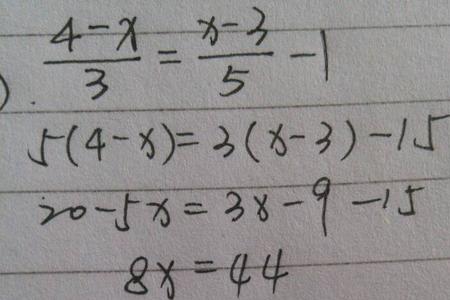 ) . (4-x)/3 = (x-3)/5 - 1
5(4-x)=3(x-3)-15
20-5x=3x-9-15
8x=44